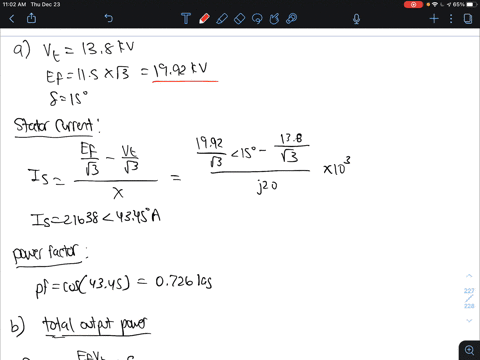 11:02 AM Thu Dec 23
65%
a) Vt = 13.8 kV
Ef = 11.5 x √3 = 19.92 kV
δ = 15°
Stator Current:
Is = (Ef/√3 - Vt/√3) / X = (19.92/√3 <15° - 13.8/√3) / j20 x10³
Is = 216.38 < 43.45° A
power factor:
pf = cos(43.45) = 0.726 lag
b) total output power
227
/
228